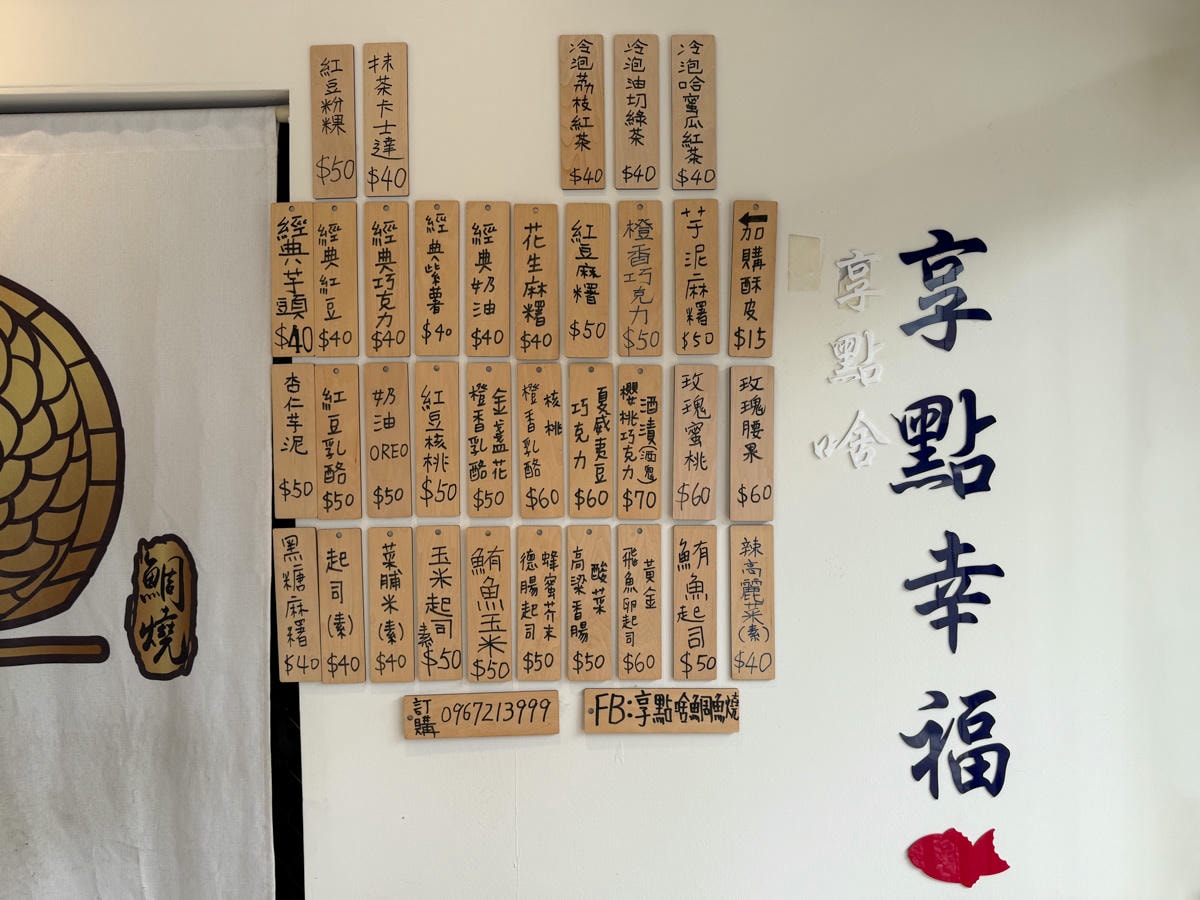 紅豆粉粿 $50
抹茶卡士達 $40
冷泡荔枝紅茶 $40
冷泡油切綠茶 $40
冷泡哈蜜瓜紅茶 $40
經典芋頭 $40
經典紅豆 $40
經典巧克力 $40
經典紫薯 $40
經典奶油 $40
花生麻糬 $40
紅豆麻糬 $50
橙香巧克力 $50
芋泥麻糬 $50
加購酥皮 $15
杏仁芋泥 $50
紅豆乳酪 $50
奶油OREO $50
紅豆核桃 $50
金盞花
橙香乳酪 $50
核桃
橙香乳酪 $60
夏威夷豆
巧克力 $60
酒漬(酒鬼)
櫻桃巧克力 $70
玫瑰蜜桃 $60
玫瑰腰果 $60
黑糖麻糬 $40
起司(素) $40
菜脯米(素) $40
玉米起司 素 $50
鮪魚玉米 $50
蜂蜜芥末
德腸起司 $50
酸菜
高梁香腸 $50
黃金
飛魚卵起司 $60
鮪魚起司 $50
辣高麗菜(素) $40
訂購 0967213999
FB:享點啥鯛魚燒
享點幸福
享點啥
鯛燒